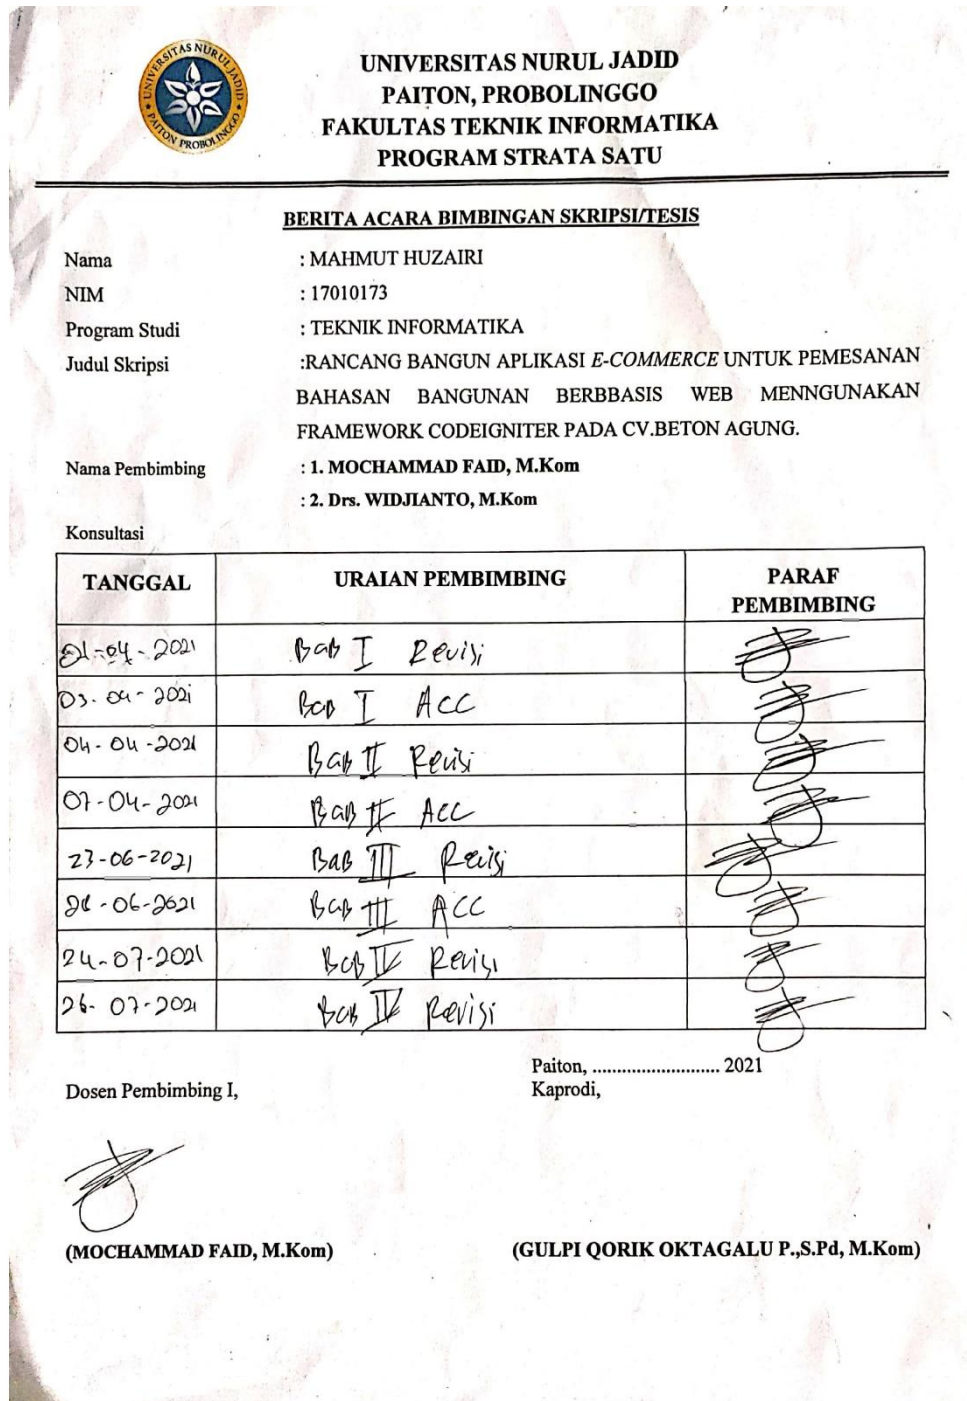 UNIVERSITAS NURUL JADID
PAITON PROBOLINGGO
UNIVERSITAS NURUL JADID
PAITON, PROBOLINGGO
FAKULTAS TEKNIK INFORMATIKA
PROGRAM STRATA SATU
BERITA ACARA BIMBINGAN SKRIPSI/TESIS
Nama : MAHMUT HUZAIRI
NIM : 17010173
Program Studi : TEKNIK INFORMATIKA
Judul Skripsi :RANCANG BANGUN APLIKASI E-COMMERCE UNTUK PEMESANAN
BAHASAN BANGUNAN BERBBASIS WEB MENNGUNAKAN
FRAMEWORK CODEIGNITER PADA CV.BETON AGUNG.
Nama Pembimbing : 1. MOCHAMMAD FAID, M.Kom
: 2. Drs. WIDJIANTO, M.Kom
Konsultasi
TANGGAL URAIAN PEMBIMBING PARAF
PEMBIMBING
01-04-2021 Bab I Revisi
03-04-2021 Bab I ACC
04-04-2021 Bab II Revisi
07-04-2021 Bab II ACC
23-06-2021 Bab III Revisi
-06-2021 Bab III ACC
24-07-2021 Bab IV Revisi
26-07-2021 Bab IV Revisi
Paiton, .......................... 2021
Dosen Pembimbing I, Kaprodi,
(MOCHAMMAD FAID, M.Kom) (GULPI QORIK OKTAGALU P.,S.Pd, M.Kom)